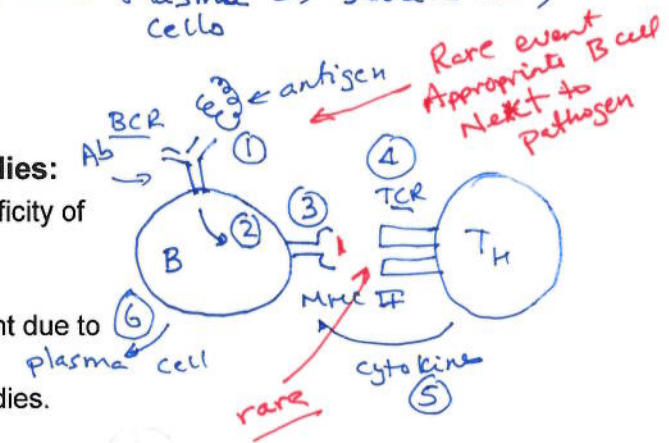 cells
antigen
Rare event
Appropriate B cell
Next to
pathogen
BCR
Ab
①
④
TCR
dies:
ficity of
③
②
B
T_H
MHC II
nt due to
⑥
plasma cell
cytokine
⑤
dies.
rare